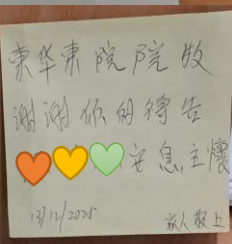 東华東院院牧
谢谢你的祷告
安息主懷
13/12/2025
家人敬上